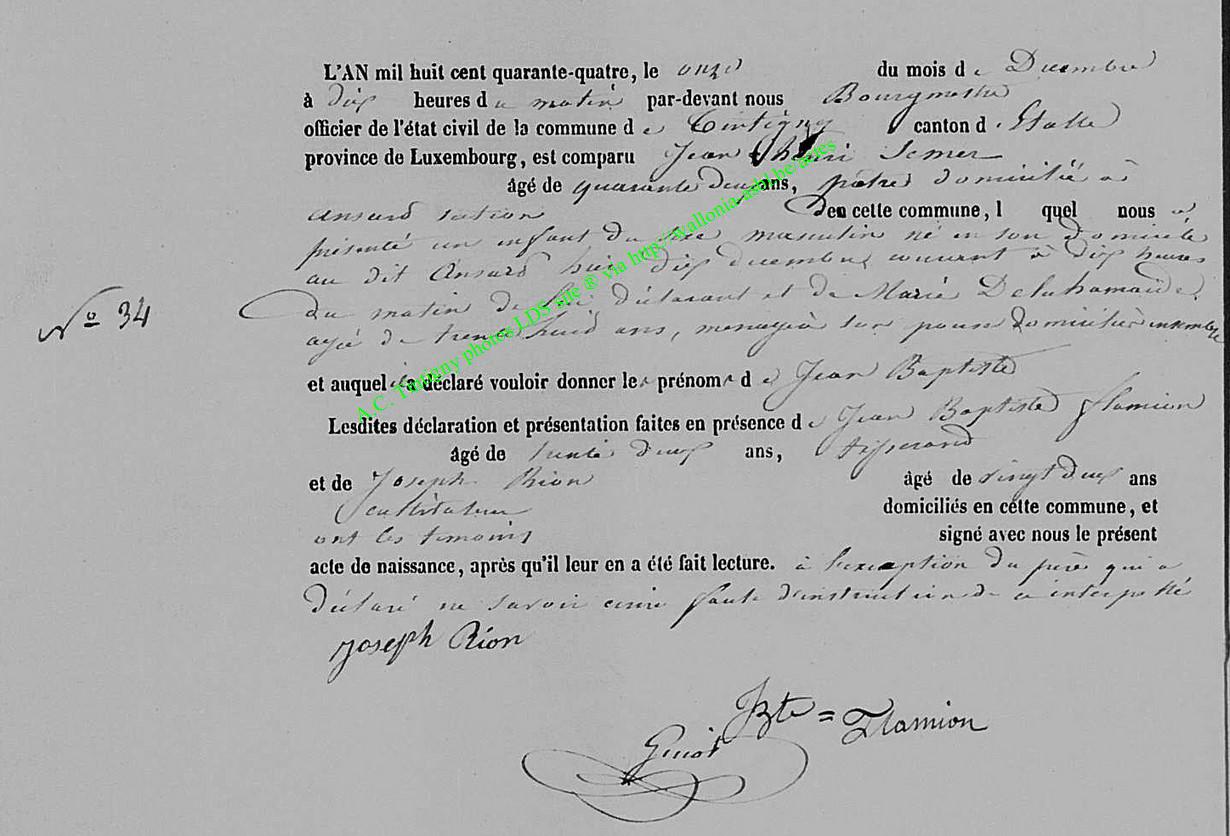 L'AN mil huit cent quarante-quatre, le onze du mois de Decembre
à dix heures du matin par-devant nous Bourgmestre
officier de l'état civil de la commune de Tintigny canton d'Etalle
province de Luxembourg, est comparu Jean Henri
âgé de quarante deux ans, pâtre domicilié à
ansard section de cette commune, lequel nous a
présenté un enfant du sexe masculin né en son domicile
au dit Ansard hier dix decembre courant à dix heures
N° 34
Du matin de lui déclarant et de Marie
agée de trente huit ans, menagère son epouse domiciliés ensemble
et auquel il a déclaré vouloir donner les prénoms de Jean Baptiste
Lesdites déclaration et présentation faites en présence de Jean Baptiste Flamion
âgé de trente deux ans, tisserand
et de Joseph Rion âgé de vingt deux ans
cultivateur domiciliés en cette commune, et
ont les temoins signé avec nous le présent
acte de naissance, après qu'il leur en a été fait lecture. à l'exception du père qui a
Déclaré ne savoir ecrire faute d'instruction de ce interpellé
Joseph Rion
JBte = Flamion
A.C. Tintigny photos LDS site ® via http://wallonia-asbl.be/actes